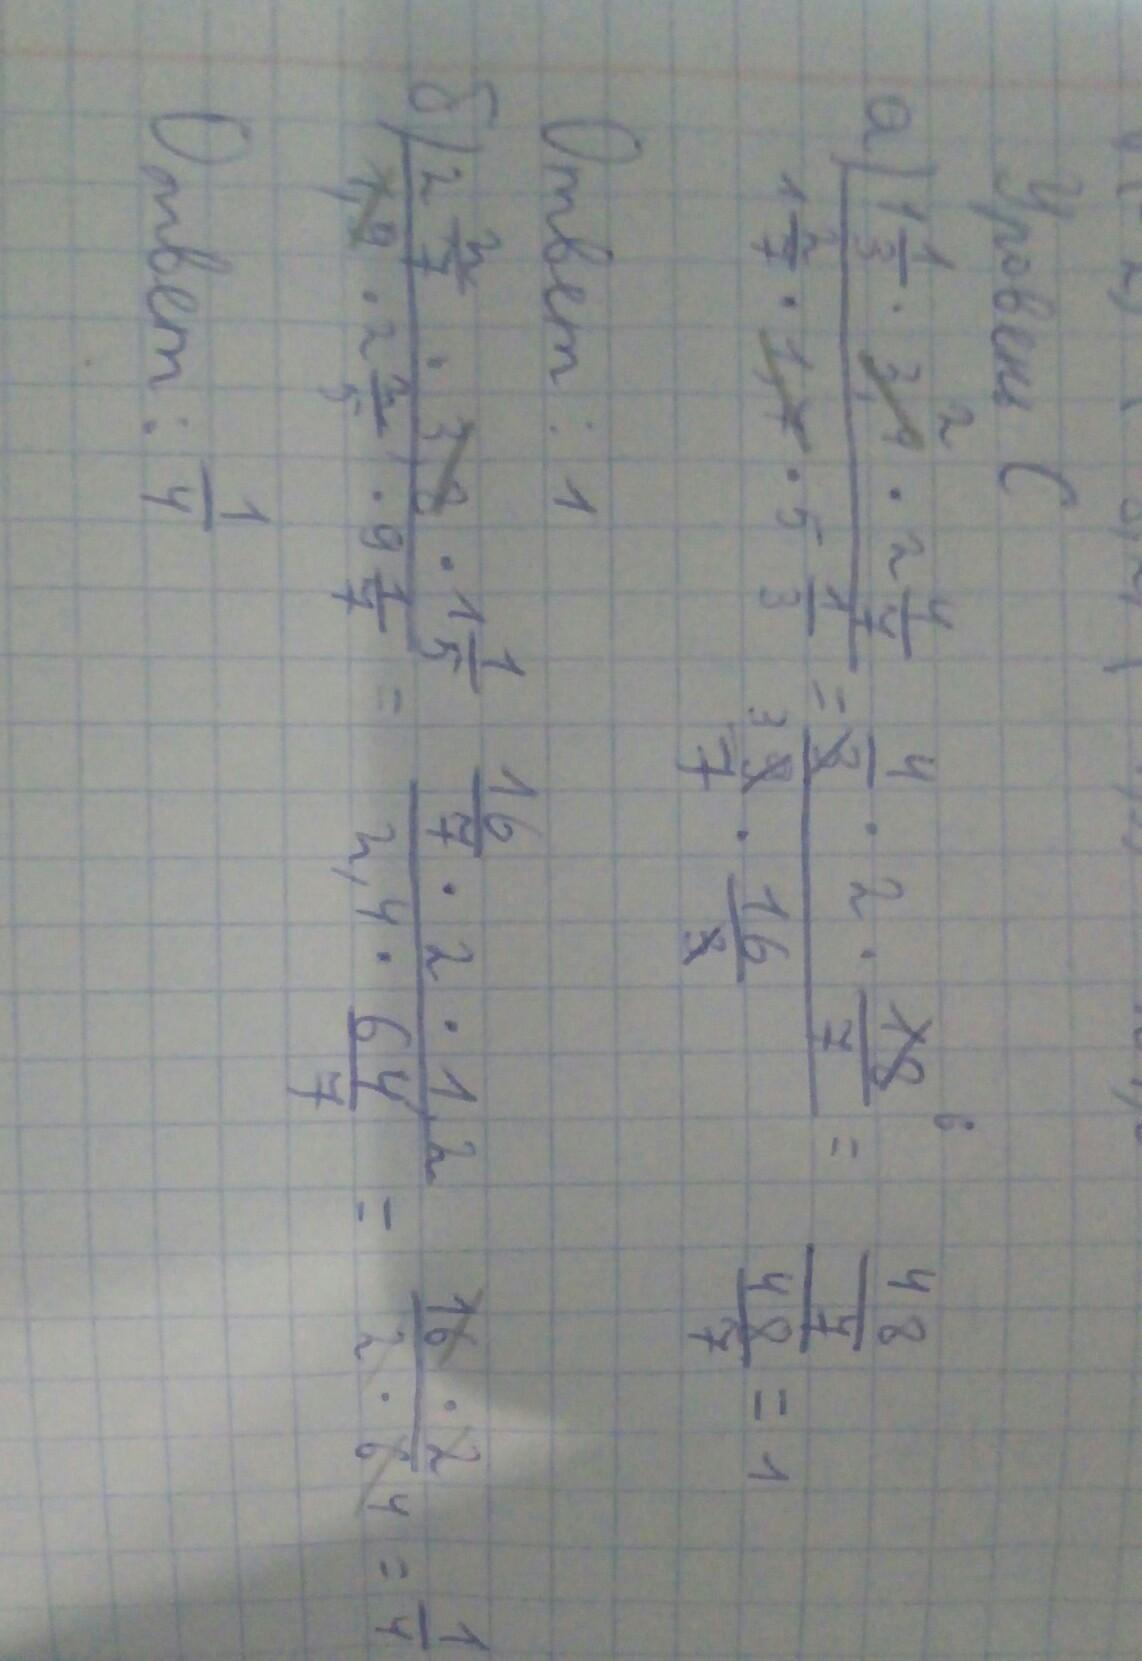 Уровень С
а) (1 1/3 · 3,4 · 2 4/7) / (1 2/7 · 1,7 · 5 1/3) = (4/3 · 2 · 18/7) / (9/7 · 16/3) = (48/7) / (48/7) = 1
Ответ: 1
б) (2 2/7 · 3,8 · 1 1/5) / (1,9 · 2 2/5 · 9 1/7) = (16/7 · 2 · 1,2) / (2,4 · 64/7) = (16 · 2) / (2 · 64) = 1/4
Ответ: 1/4